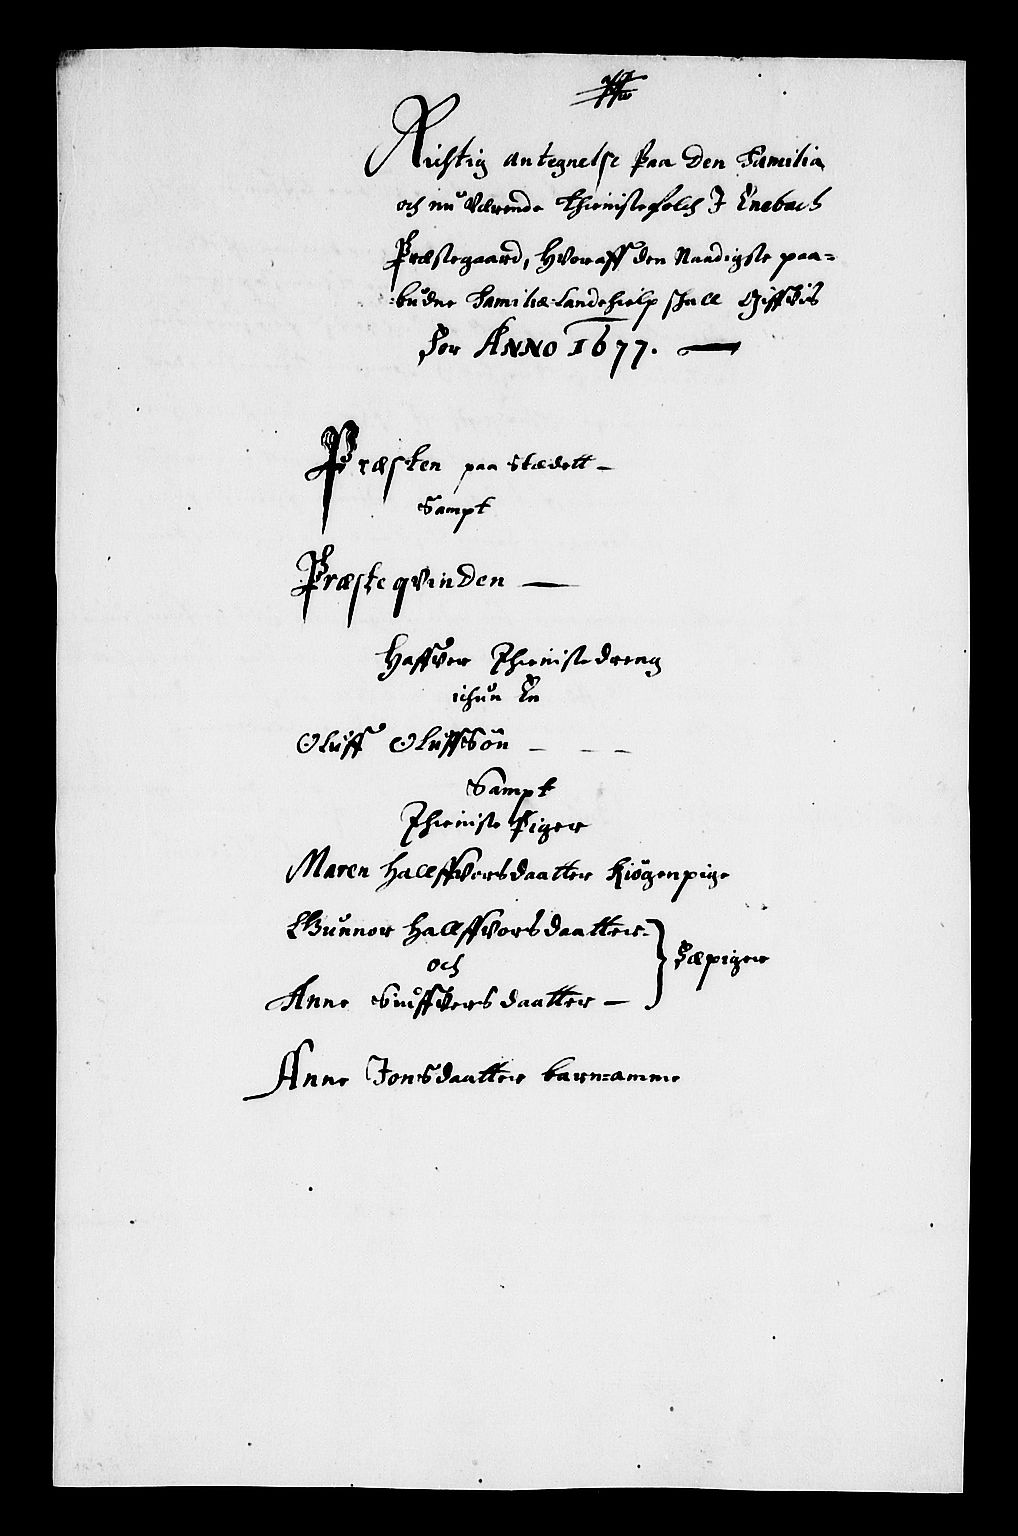 Richtig antegnelse paa den Familia
och nu værende thienistefolch I Enebach
Præstegaard, hvoraff den Naadigste paa=
budne Familiæ-Landehielp shall Giffvis
for ANNO 1677.
Præsten paa stædett –
Sampt
Præsteqvinden –
Haffver Thienistedreng
ichun En
Oluff Oluffsøn – – –
Sampt
Thieniste Piger
Maren Hallffvorsdaatter Kiögenpige
Gunnor Hallffvorsdaatter
och
Anne Siuffversdaatter –
Fæpiger
Anne Jonsdaatter barn=amme